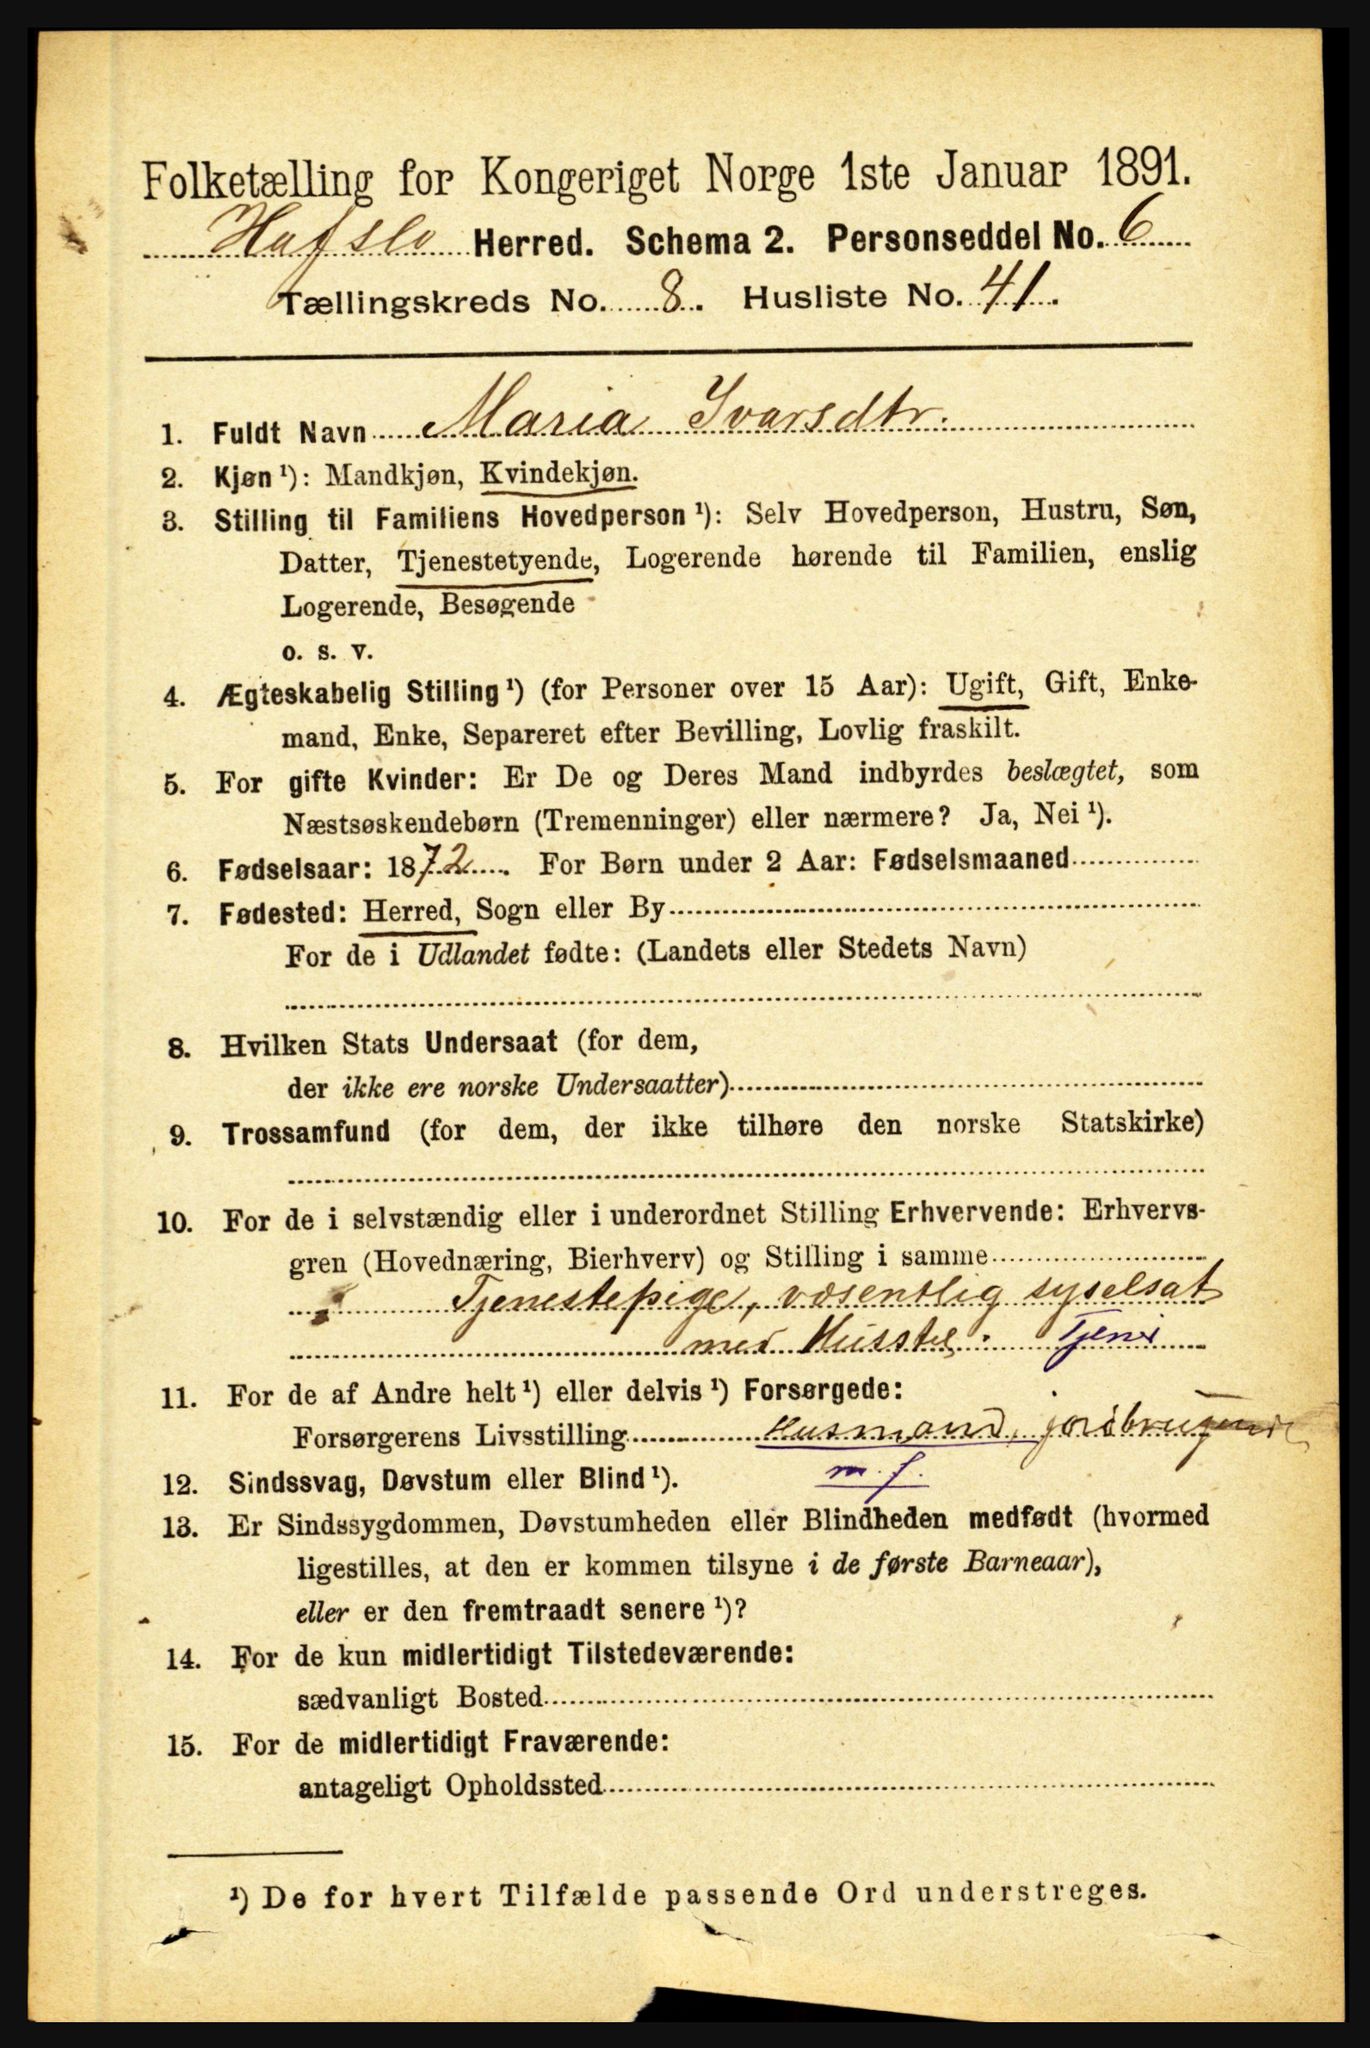 Folketælling for Kongeriget Norge 1ste Januar 1891.
Hafslo Herred. Schema 2. Personseddel No. 6
Tællingskreds No. 8. Husliste No. 41.
1. Fuldt Navn Maria Ivarsdtr.
2. Kjøn ¹): Mandkjøn, Kvindekjøn.
3. Stilling til Familiens Hovedperson ¹): Selv Hovedperson, Hustru, Søn,
Datter, Tjenestetyende, Logerende hørende til Familien, enslig
Logerende, Besøgende
o. s. v.
4. Ægteskabelig Stilling ¹) (for Personer over 15 Aar): Ugift, Gift, Enke-
mand, Enke, Separeret efter Bevilling, Lovlig fraskilt.
5. For gifte Kvinder: Er De og Deres Mand indbyrdes beslægtet, som
Næstsøskendebørn (Tremenninger) eller nærmere? Ja, Nei ¹).
6. Fødselsaar: 1872. For Børn under 2 Aar: Fødselsmaaned
7. Fødested: Herred, Sogn eller By
For de i Udlandet fødte: (Landets eller Stedets Navn)
8. Hvilken Stats Undersaat (for dem,
der ikke ere norske Undersaatter)
9. Trossamfund (for dem, der ikke tilhøre den norske Statskirke)
10. For de i selvstændig eller i underordnet Stilling Erhvervende: Erhvervs-
gren (Hovednæring, Bierhverv) og Stilling i samme
Tjenestepige, væsentlig syselsat
med Husstel. Tjener
11. For de af Andre helt ¹) eller delvis ¹) Forsørgede:
Forsørgerens Livsstilling Husmand, jordbrugende
m. f.
12. Sindssvag, Døvstum eller Blind ¹).
13. Er Sindssygdommen, Døvstumheden eller Blindheden medfødt (hvormed
ligestilles, at den er kommen tilsyne i de første Barneaar),
eller er den fremtraadt senere ¹)?
14. For de kun midlertidigt Tilstedeværende:
sædvanligt Bosted
15. For de midlertidigt Fraværende:
antageligt Opholdssted
¹) De for hvert Tilfælde passende Ord understreges.